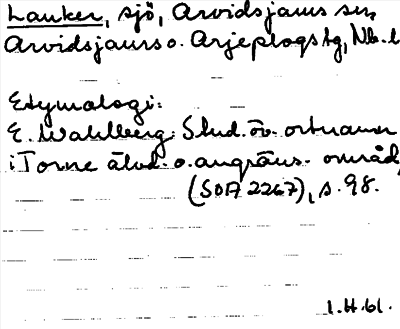 Lauker, sjö, Arvidsjaurs sn,
Arvidsjaurs o. Arjeplogs tg, Nb. l
Etymologi:
E. Wahlberg: Stud. öv. ortnamn
i Torne älvd. o. angräns. områd,
(SOA 2267), s. 98.
1.H.61.